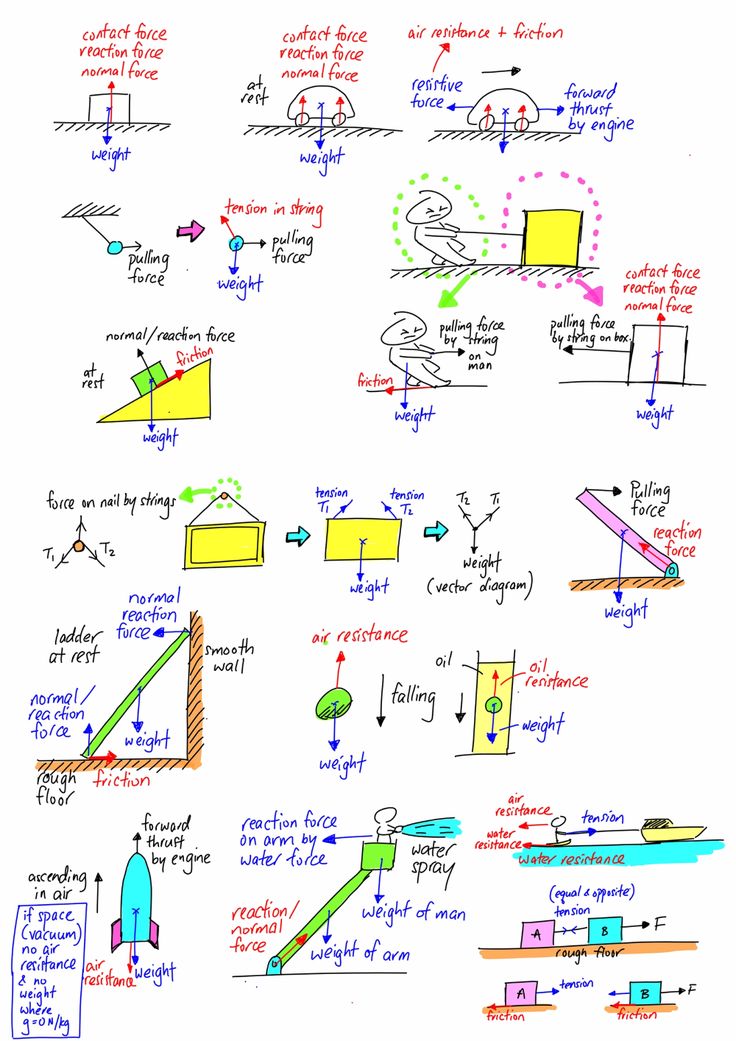 contact force
reaction force
normal force
weight
at
rest
contact force
reaction force
normal force
weight
air resistance + friction
resistive
force
forward
thrust
by engine
weight
pulling
force
tension in string
pulling
force
weight
pulling force
by string
on
man
friction
weight
contact force
reaction force
normal force
pulling force
by string on box
weight
normal/reaction force
at
rest
friction
weight
force on nail by strings
T1
T2
tension
T1
tension
T2
weight
T2
T1
weight
(vector diagram)
Pulling
force
reaction
force
weight
normal
reaction
force
ladder
at rest
smooth
wall
normal/
reaction
force
weight
rough
floor
friction
air resistance
falling
weight
oil
oil
resistance
weight
forward
thrust
by engine
ascending
in air
if space
(vacuum)
no air
resistance
& no
weight
where
g=0N/kg
air
resistance
weight
reaction force
on arm by
water force
water
spray
weight of man
reaction/
normal
force
weight of arm
air
resistance
tension
water
resistance
water resistance
(equal & opposite)
tension
A
B
F
rough floor
A
tension
friction
B
F
friction